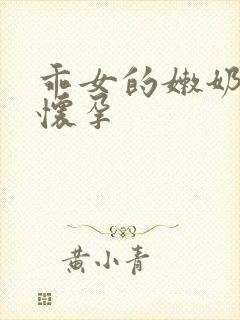 乖女的嫩奶
懷孕
黃小青